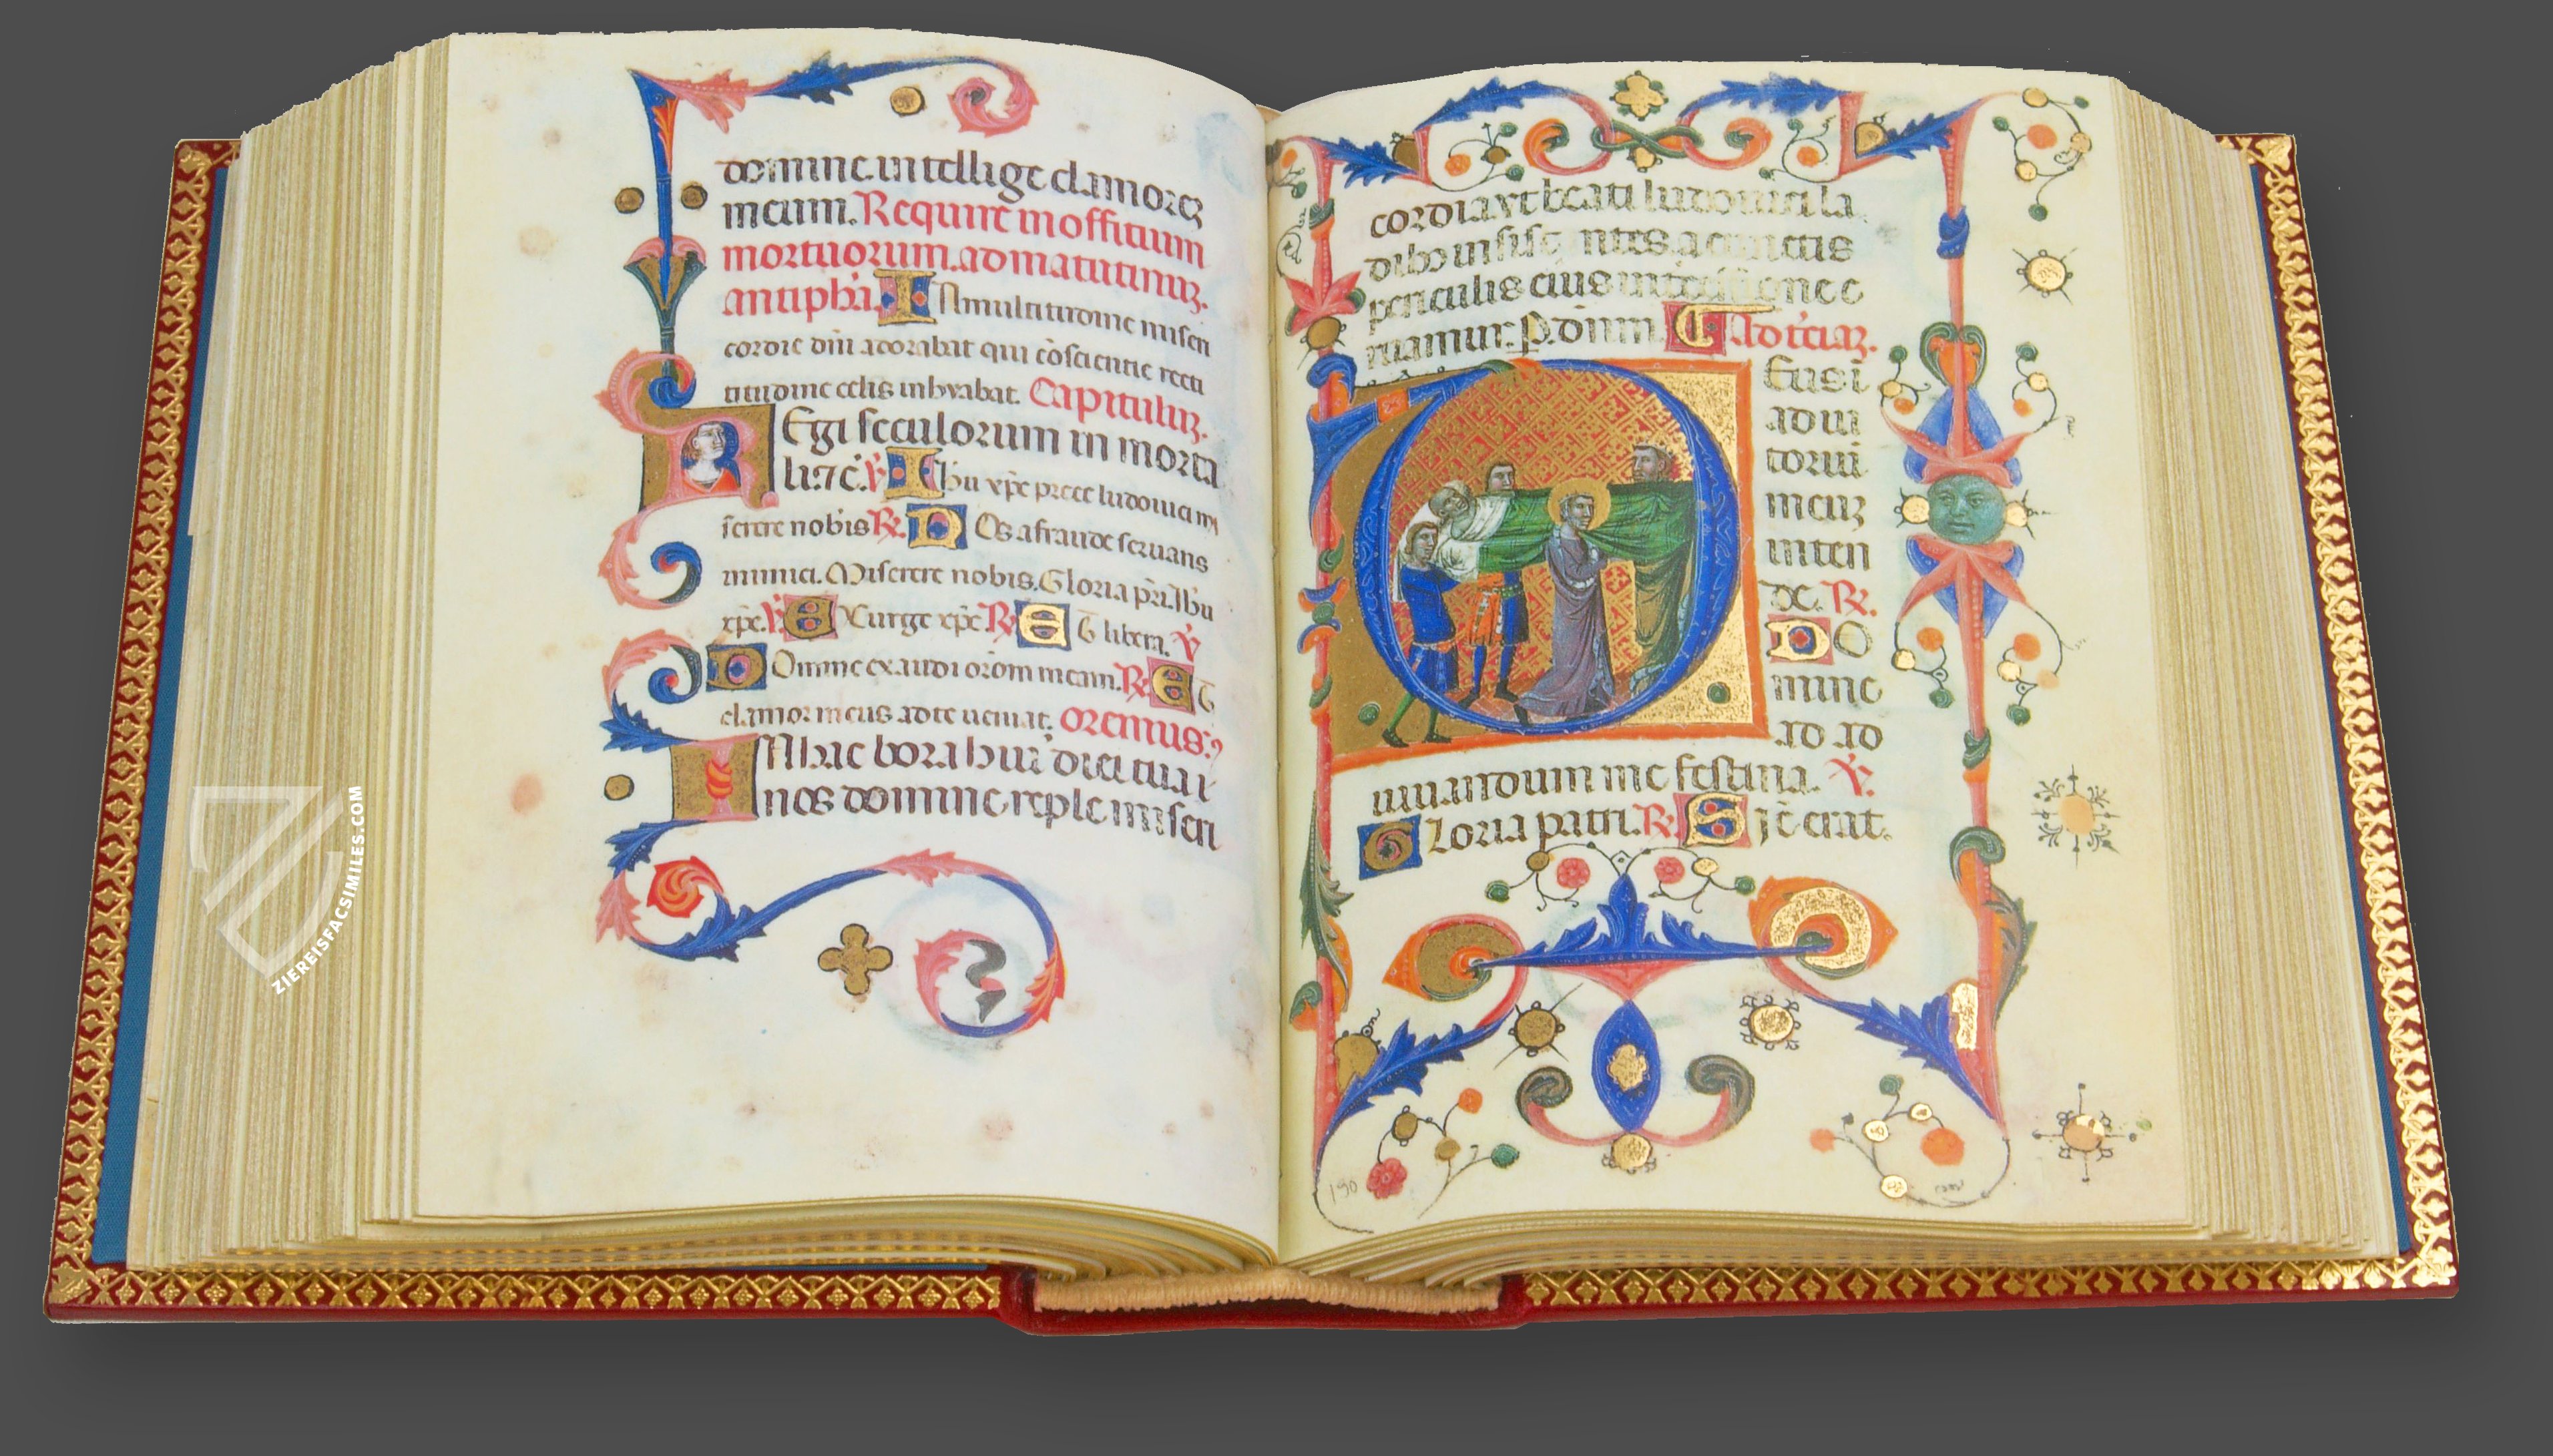 domine intellige clamorez
meum. Require in offitium
mortuorum. ad matutinuz.
antipha. I N multitudine miseri
cordie dni adorabat qui cosciencie recti
titudine celis inhyabat. Capituluz.
R Egi seculorum in morta
li. 7c. V. I hu xpe prece ludouici mi
serere nobis R. N Os a fraude seruans
inimici. Miserere nobis. Gloria pri. Ihu
xpe. V. E Xurge xpe R. E t libera. V
D Omine exaudi orom meam. R. E t
clamor meus ad te ueniat. Oremus.
I N hac hora huius diei tua
nos domine reple miseri
cordia vt beati ludouici la
periculis eius
ruamur. P. dnm. Ad terciaz.
D Eus i
n ad iu
toriu
meuz
inten
de. R.
DO
mine
ad ad
iuuandum me festina. V.
G Loria patri. R. S ic erat.
190
ZIEREISFACSIMILES.COM